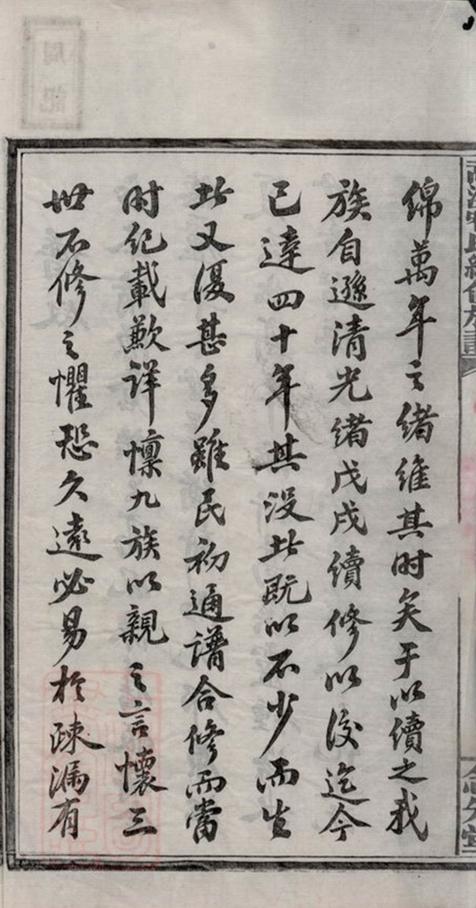 綿萬年之緒維其时矣于以續之我
族自遜清光緒戊戌續修以後迄今
已達四十年其没者既以不少而生
者又復甚多雖民初通譜合修而當
时纪載歉详懔九族以親之言懷三
世不修之懼恐久遠必易於疎漏有